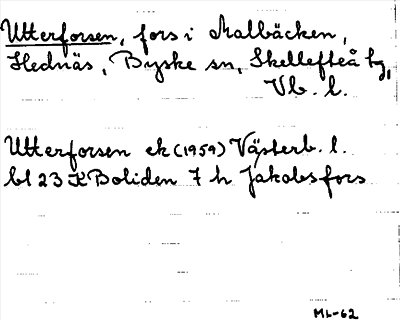 Utterforsen, fors i Malbäcken,
Hednäs, Byske sn, Skellefteå tg,
Vb. l.
Utterforsen ek (1959) Västerb. l.
bl 23 K Boliden 7 h Jakobsfors
ML-62